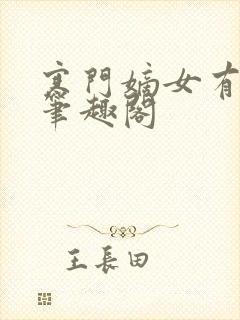 寒門嫡女有
筆趣閣
王長田